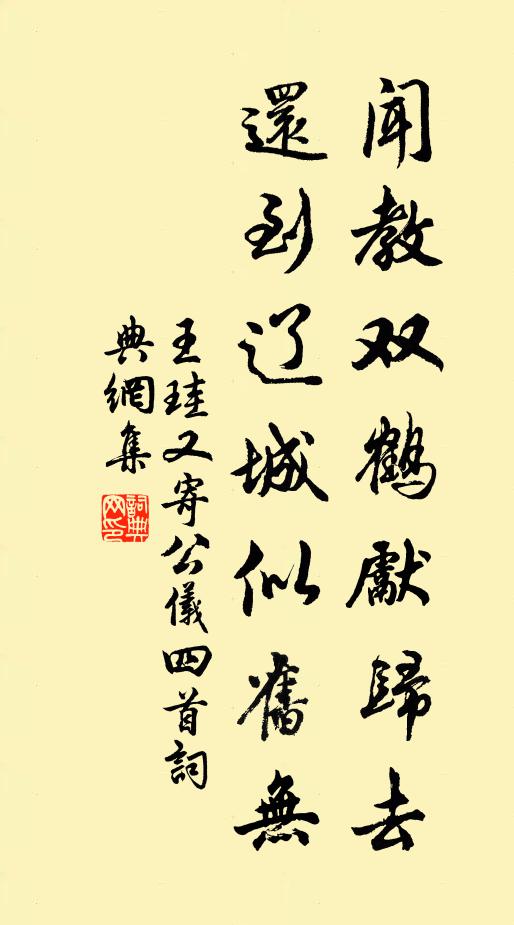 闻教双鹤献歸去
還到辽城似舊無
王珪又寄公儀四首詞
典網集
詞典網印